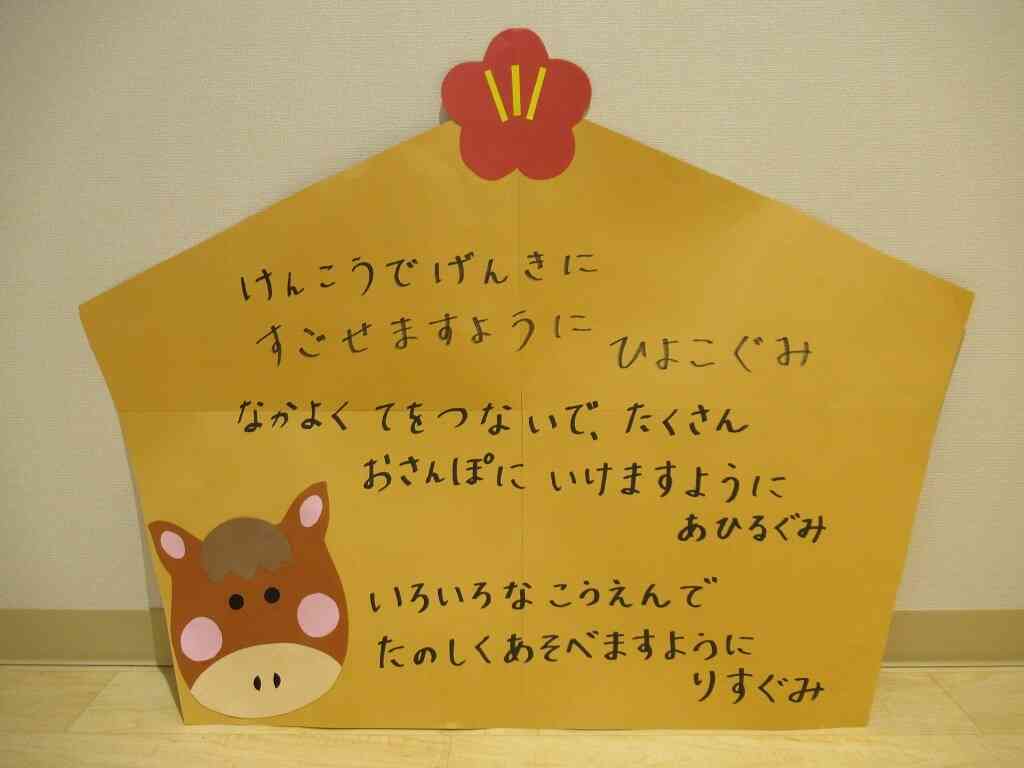 けんこうでげんきに
すごせますように
ひよこぐみ
なかよく てをつないで、たくさん
おさんぽに いけますように
あひるぐみ
いろいろな こうえんで
たのしくあそべますように
りすぐみ